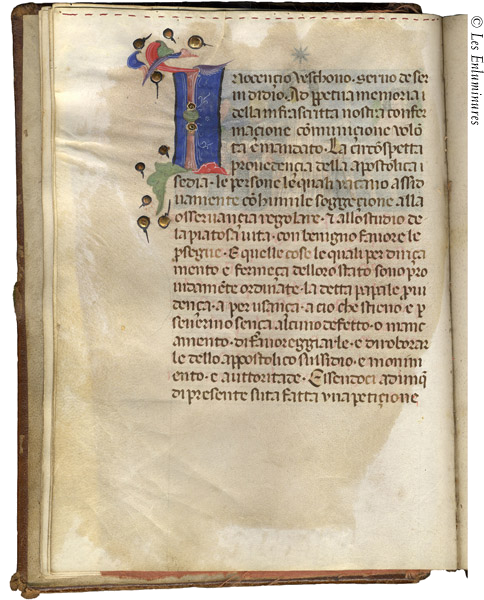 Innocençio veschouo. seruo de ser
ui di dio. Ad ppetua memoria i
della infrascritta nostra confer
maçione comuniçione volō
tà e mandato. La circōspetta
prouedencia della apostolica i
sedia. le persone le quali vacano assid
uamente cō humile soggeçione alla
osseruançia regolare. & allo studio de
la piatosa vita. con benigno fauore le
psegue. E quelle cose le quali per dirica
mento e fermeça dello ro stato sono pro
uidamēte ordinate. la detta papale ꝓui
dença. a per usança. a cio che stieno e p
seuerino sença alcuno defetto. o manc
amento. di fauoreggiarle. e di roborar
le dello appostolico sussidio. e monim
ento. e auttoritade. Essendoci adunq̄
di presente suta fatta vna petiçione
© Les Enluminures